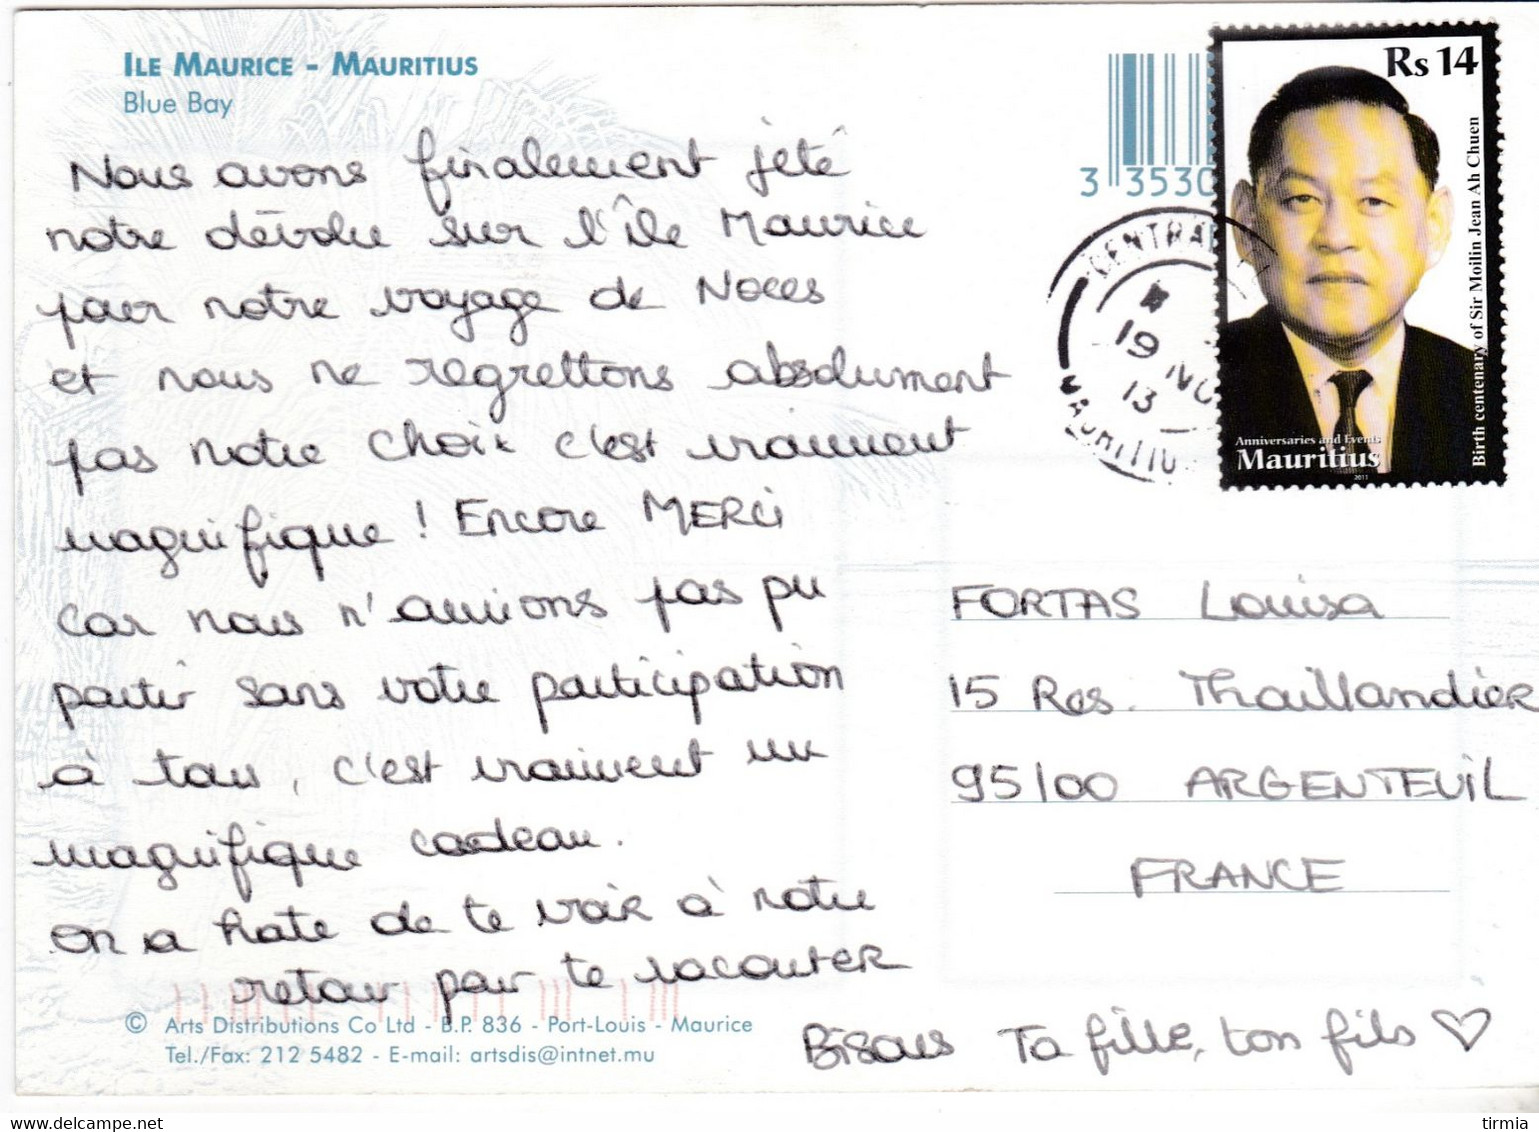 ILE MAURICE - MAURITIUS
Blue Bay
Nous avons finalement jété
notre dévolu sur l'île Maurice
pour notre voyage de Noces
et nous ne regrettons absolument
pas notre choix c'est vraiment
magnifique ! Encore MERCi
car nous n'aurions pas pu
partir sans votre participation
à tous, c'est vraiment un
magnifique cadeau.
On a hate de te voir à notre
retour pour te raconter
Bisous Ta fille, ton fils ♡
© Arts Distributions Co Ltd - B.P. 836 - Port-Louis - Maurice
Tel./Fax: 212 5482 - E-mail: artsdis@intnet.mu
3 3530
Rs 14
Birth centenary of Sir Moilin Jean Ah Chuen
Anniversaries and Events
Mauritius
2011
CENTRAL
19 NO
13
MAURITIU
FORTAS Louisa
15 Res. Thaillandier
95100 ARGENTEUIL
FRANCE
delcampe.net
tirmia